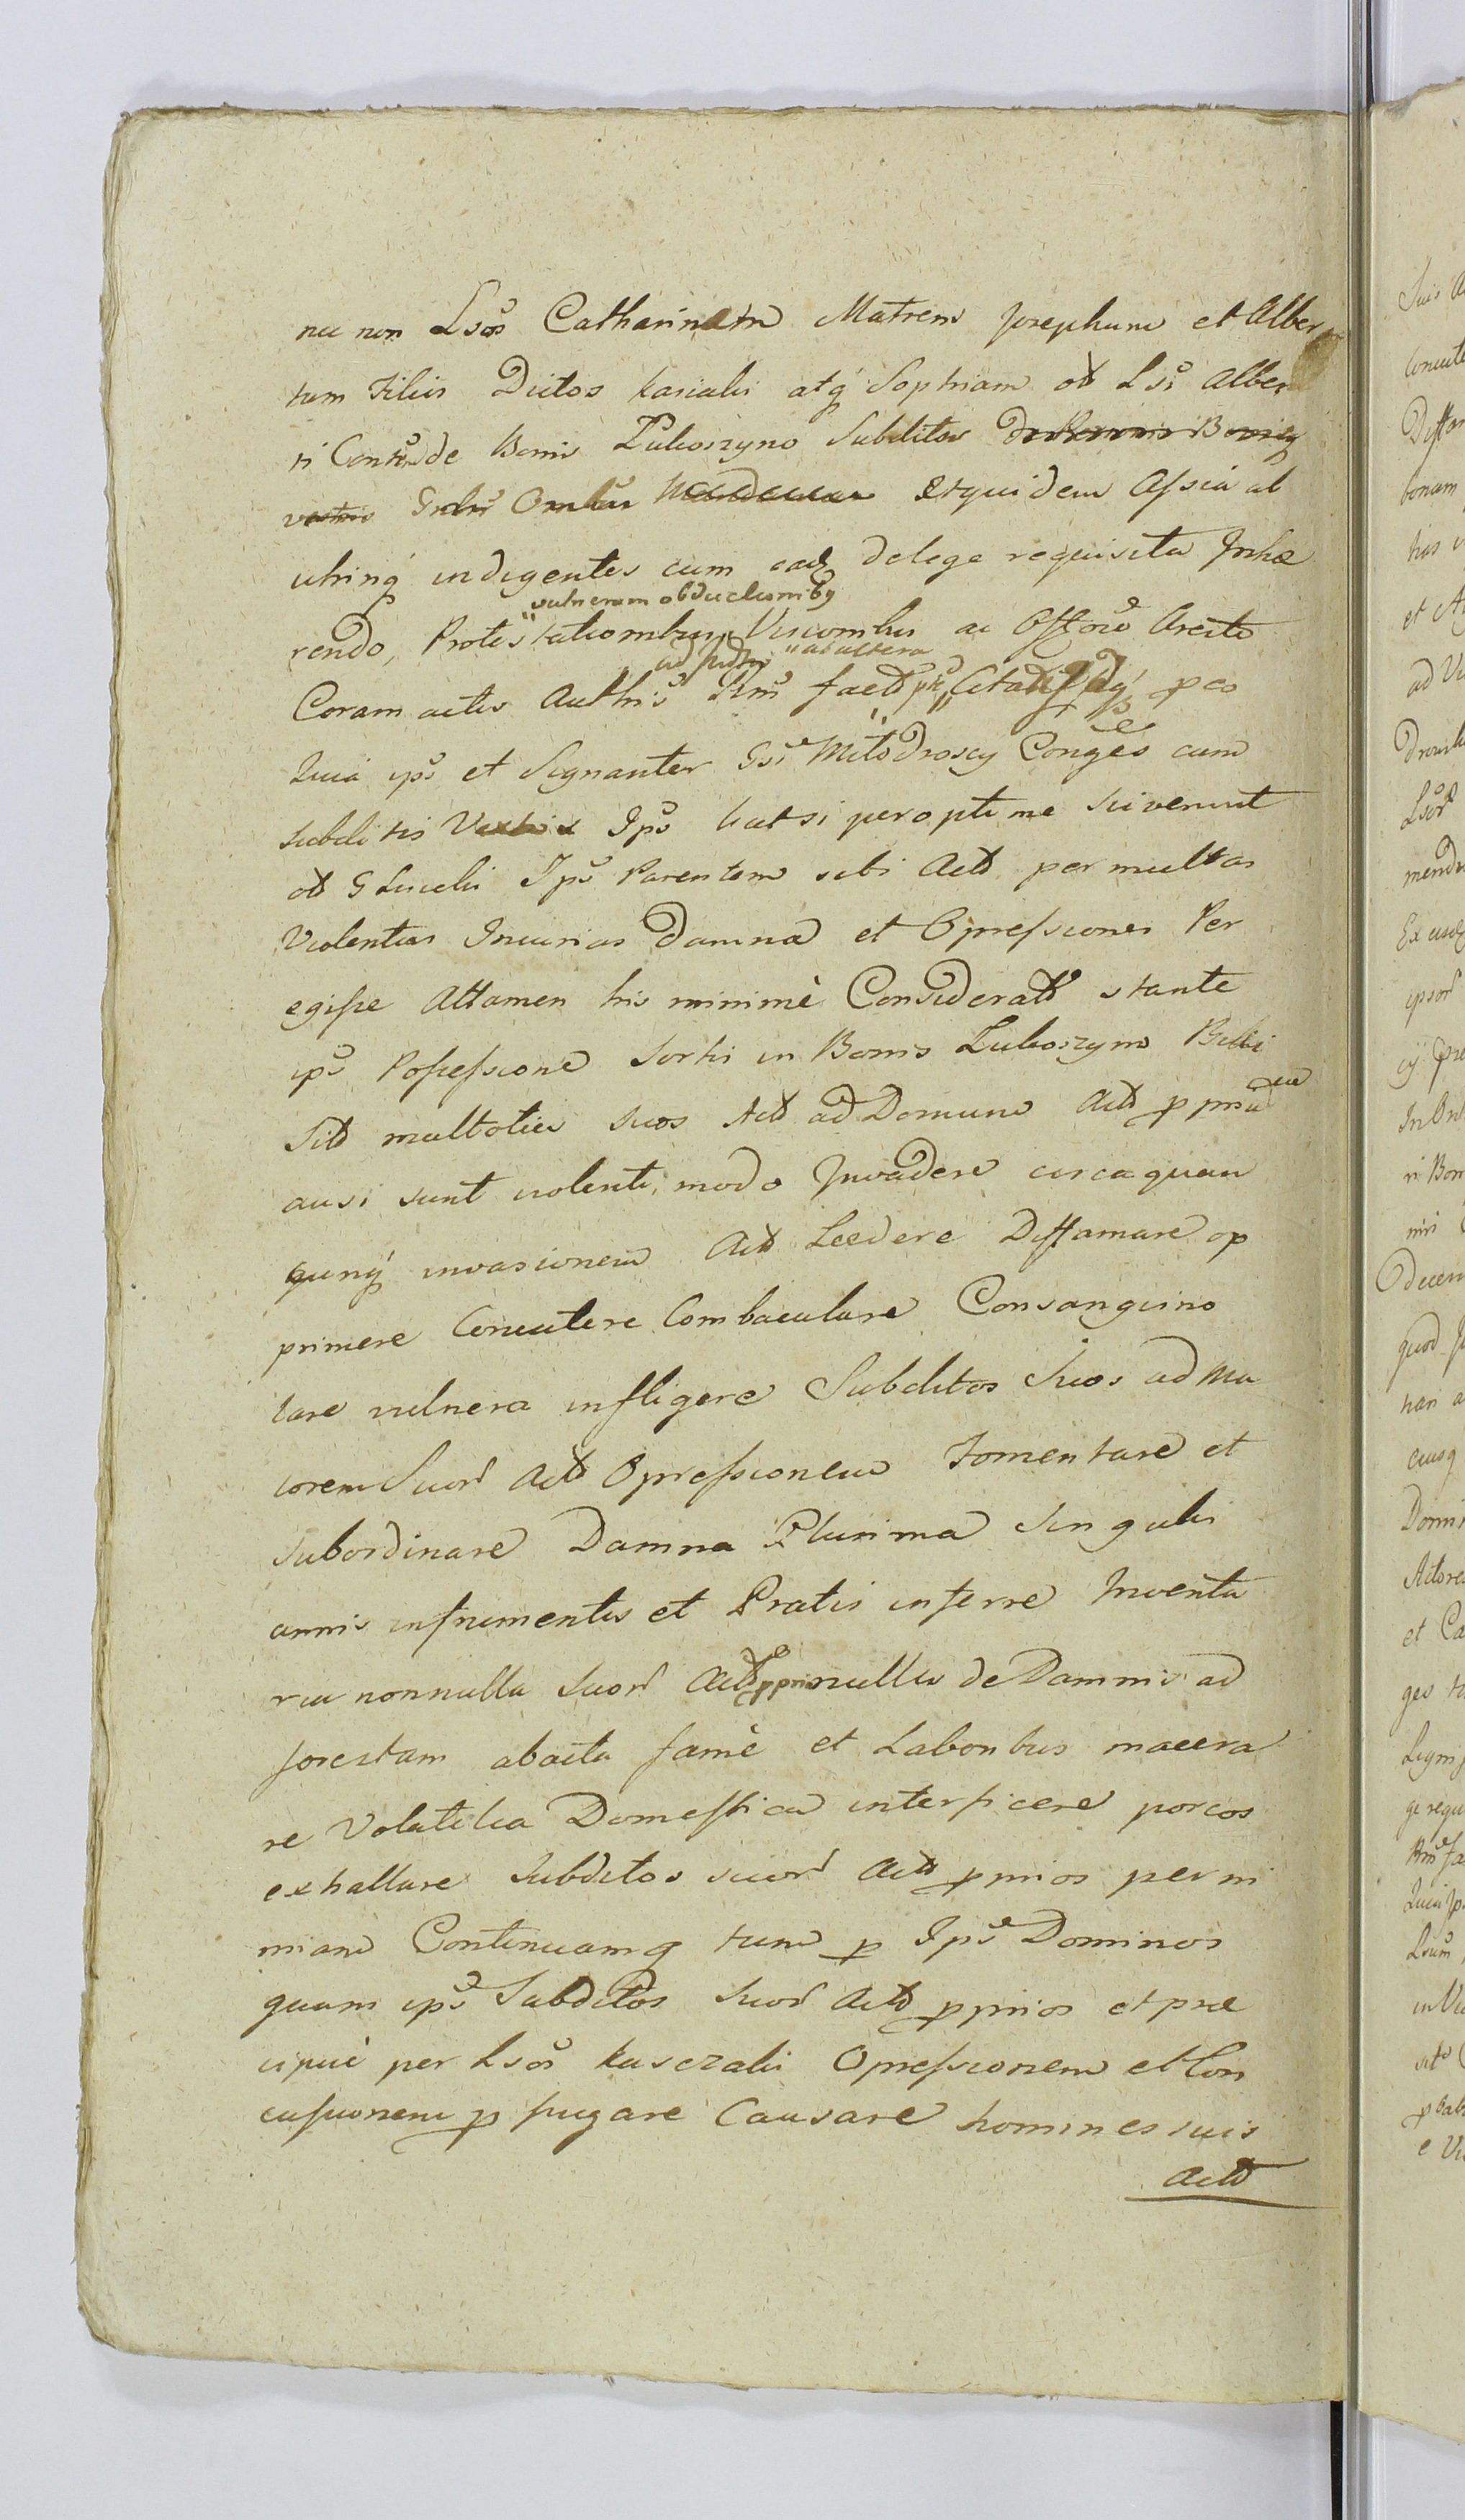 nec non Lsos Catharinam Matrem Josephum et Alber
tum Filios Dictos Kasialis atq Sophiam olt Lsi Alber
ti de Bonis Luboszyno Subditos
vestris etquidem Assia ab
utrinq indigentes cum eaq delege requisita Inhæ
vulnerum obductionibq
rendo, Protestationibus Visionibus ac Offõre Aresto
ab altera
Coram actis Authis Rmi p eo
Quia ips et Signanter Gsi Conges cum
subditis Ips Katsi peroptime sciverunt
olt G Lucelii Ips Parentem sibi Actt permultas
Violentias Iniurias Damna et Opressiones Per
egisse Attamen his minimè Consideratt stante
ips Possessione Sortis in Bonis Luboszyno
Sitt multoties suos Actt ad Domum Actt
ausi sunt violenti modo Invadere circa quam
qunq invasionem Actt Lædere Diffamare op
primere Concutere Combaculare Consanguino
lare vulnera infligere Subditos Suos ad Ma
iorem Suor Actt Opressionem Fomentare et
Subordinare Damna Plurima Singulis
annis infrumentis et Pratis inferre Inventa
ria nonnulla Suor Actt ppria nullis de Damnis ad
forestam abacta famè et Laboribus macera
re Volatilia Domestica interficere porcos
exhallare Subditos suor Actt pprios per ni
miam Continuamq tum p Ips Dominos
quam ips Subditos Suor Actt pprios et præ
cipuè per Lsos Kasczalis Opressionem et Con
cussionem p fugare Causare homines suis
Actt